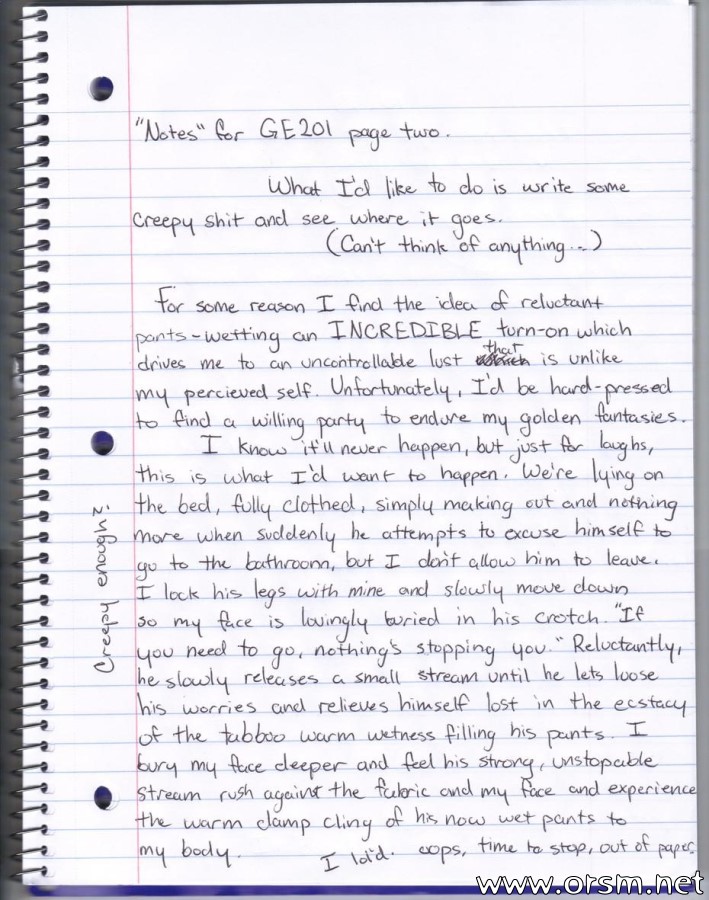 "Notes" for GE201 page two.
What I'd like to do is write some
creepy shit and see where it goes.
(Can't think of anything...)
For some reason I find the idea of reluctant
pants-wetting an INCREDIBLE turn-on which
drives me to an uncontrollable lust that is unlike
my percieved self. Unfortunately, I'd be hard-pressed
to find a willing party to endure my golden fantasies.
I know it'll never happen, but just for laughs,
this is what I'd want to happen. We're lying on
the bed, fully clothed, simply making out and nothing
more when suddenly he attempts to excuse himself to
go to the bathroom, but I don't allow him to leave.
I lock his legs with mine and slowly move down
so my face is lovingly buried in his crotch. "If
you need to go, nothing's stopping you." Reluctantly,
he slowly releases a small stream until he lets loose
his worries and relieves himself lost in the ecstacy
of the tabboo warm wetness filling his pants. I
bury my face deeper and feel his strong, unstopable
stream rush against the fabric and my face and experience
the warm damp cling of his now wet pants to
my body. I lol'd. oops, time to stop, out of paper.
Creepy enough?
www.orsm.net